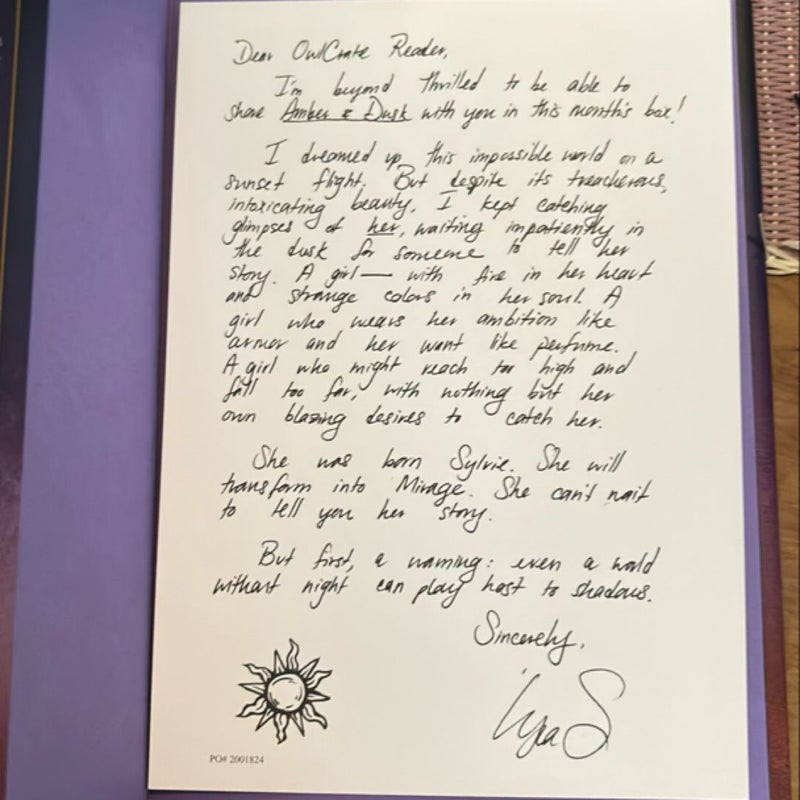 Dear OwlCrate Reader,
I'm beyond thrilled to be able to
share Amber & Dusk with you in this month's box!
I dreamed up this impossible world on a
sunset flight. But despite its treacherous,
intoxicating beauty, I kept catching
glimpses of her, waiting impatiently in
the dusk for someone to tell her
story. A girl — with fire in her heart
and strange colors in her soul. A
girl who wears her ambition like
armor and her want like perfume.
A girl who might reach too high and
fall too far, with nothing but her
own blazing desires to catch her.
She was born Sylvie. She will
transform into Mirage. She can't wait
to tell you her story.
But first, a warning: even a world
without night can play host to shadows.
Sincerely,
Lyra S
PO# 2001824